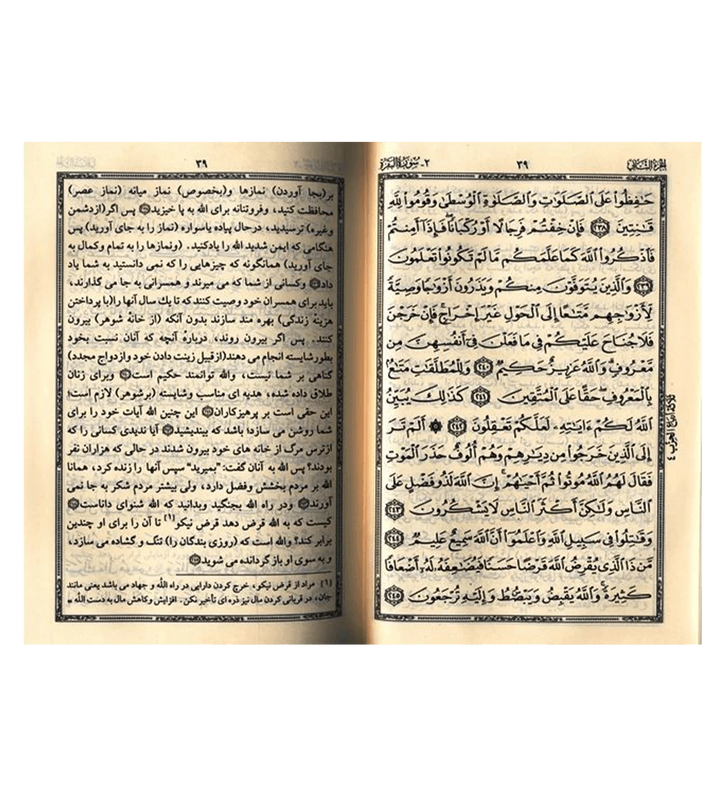 ٢- سورة البقرة
٣٩
الجزء الثاني
حَـٰفِظُوا۟ عَلَى ٱلصَّلَوَٰتِ وَٱلصَّلَوٰةِ ٱلْوُسْطَىٰ وَقُومُوا۟ لِلَّهِ
قَـٰنِتِينَ ٢٣٨ فَإِنْ خِفْتُمْ فَرِجَالًا أَوْ رُكْبَانًا ۖ فَإِذَآ أَمِنتُمْ
فَٱذْكُرُوا۟ ٱللَّهَ كَمَا عَلَّمَكُم مَّا لَمْ تَكُونُوا۟ تَعْلَمُونَ
٢٣٩ وَٱلَّذِينَ يُتَوَفَّوْنَ مِنكُمْ وَيَذَرُونَ أَزْوَٰجًا وَصِيَّةً
لِّأَزْوَٰجِهِم مَّتَـٰعًا إِلَى ٱلْحَوْلِ غَيْرَ إِخْرَاجٍ ۚ فَإِنْ خَرَجْنَ
فَلَا جُنَاحَ عَلَيْكُمْ فِى مَا فَعَلْنَ فِىٓ أَنفُسِهِنَّ مِن
مَّعْرُوفٍ ۗ وَٱللَّهُ عَزِيزٌ حَكِيمٌ ٢٤٠ وَلِلْمُطَلَّقَـٰتِ مَتَـٰعٌۢ
بِٱلْمَعْرُوفِ ۖ حَقًّا عَلَى ٱلْمُتَّقِينَ ٢٤١ كَذَٰلِكَ يُبَيِّنُ
ٱللَّهُ لَكُمْ ءَايَـٰتِهِۦ لَعَلَّكُمْ تَعْقِلُونَ ٢٤٢ ۞ أَلَمْ تَرَ
إِلَى ٱلَّذِينَ خَرَجُوا۟ مِن دِيَـٰرِهِمْ وَهُمْ أُلُوفٌ حَذَرَ ٱلْمَوْتِ
فَقَالَ لَهُمُ ٱللَّهُ مُوتُوا۟ ثُمَّ أَحْيَـٰهُمْ ۚ إِنَّ ٱللَّهَ لَذُو فَضْلٍ عَلَى
ٱلنَّاسِ وَلَـٰكِنَّ أَكْثَرَ ٱلنَّاسِ لَا يَشْكُرُونَ ٢٤٣
وَقَـٰتِلُوا۟ فِى سَبِيلِ ٱللَّهِ وَٱعْلَمُوٓا۟ أَنَّ ٱللَّهَ سَمِيعٌ عَلِيمٌ ٢٤٤
مَّن ذَا ٱلَّذِى يُقْرِضُ ٱللَّهَ قَرْضًا حَسَنًا فَيُضَـٰعِفَهُۥ لَهُۥٓ أَضْعَافًا
كَثِيرَةً ۚ وَٱللَّهُ يَقْبِضُ وَيَبْصُۜطُ وَإِلَيْهِ تُرْجَعُونَ ٢٤٥
٣٩
بر(بجا آوردن) نمازها و(بخصوص) نماز میانه (نماز عصر)
محافظت کنید، وفروتنانه برای الله به پا خیزید پس اگر(ازدشمن
وغیره) ترسیدید، درحال پیاده یاسواره (نماز را به جای آورید) پس
هنگامی که ایمن شدید الله را یادکنید. (ونمازها را به تمام وکمال به
جای آورید) همانگونه که چیزهایی را که نمی دانستید به شما یاد
داد وکسانی از شما که می میرند و همسرانی به جا می گذارند،
باید برای همسران خود وصیت کنند که تا یك سال آنها را(با پرداختن
هزینۀ زندگی) بهره مند سازند بدون آنکه (از خانۀ شوهر) بیرون
کنند. پس اگر بیرون روند، دربارۀ آنچه که آنان نسبت بخود
بطورشایسته انجام می دهند(ازقبیل زینت دادن خود وازدواج مجدد)
گناهی بر شما نیست، والله توانمند حکیم است وبرای زنان
طلاق داده شده، هدیه ای مناسب وشایسته (برشوهر) لازم است؛
این حقی است بر پرهیزکاران این چنین الله آیات خود را برای
شما روشن می سازد؛ باشد که بیندیشید آیا ندیدی کسانی را که
ازترس مرگ از خانه های خود بیرون شدند در حالی که هزاران نفر
بودند؟ پس الله به آنان گفت: "بمیرید" سپس آنها را زنده کرد، همانا
الله بر مردم بخشش وفضل دارد، ولی بیشتر مردم شکر به جا نمی
آورند ودر راه الله بجنگید وبدانید که الله شنوای داناست
کیست که به الله قرض دهد قرض نیکو(١) تا آن را برای او چندین
برابر کند؟ والله است که (روزی بندگان را) تنگ و گشاده می سازد،
و به سوی او باز گردانده می شوید
(١) مراد از قرض نیکو، خرج کردن دارایی در راه الله و جهاد می باشد یعنی مانند
جان، در قربانی کردن مال نیز ذره ای تأخیر نکن. افزایش وکاهش مال به دست الله =